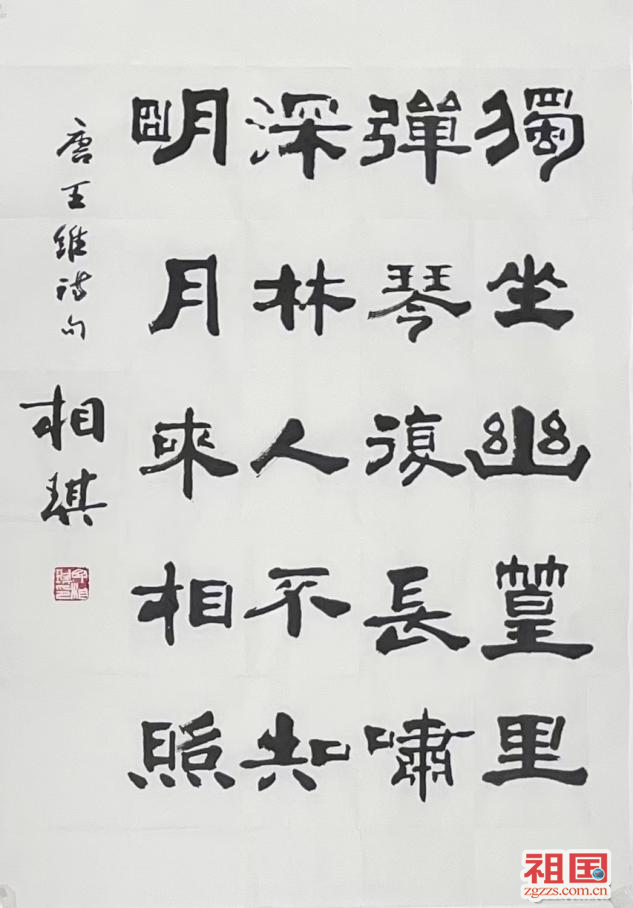 獨坐幽篁里
彈琴復長嘯
深林人不知
明月來相照
唐王維詩句
相琪
祖国
zgzzs.com.cn